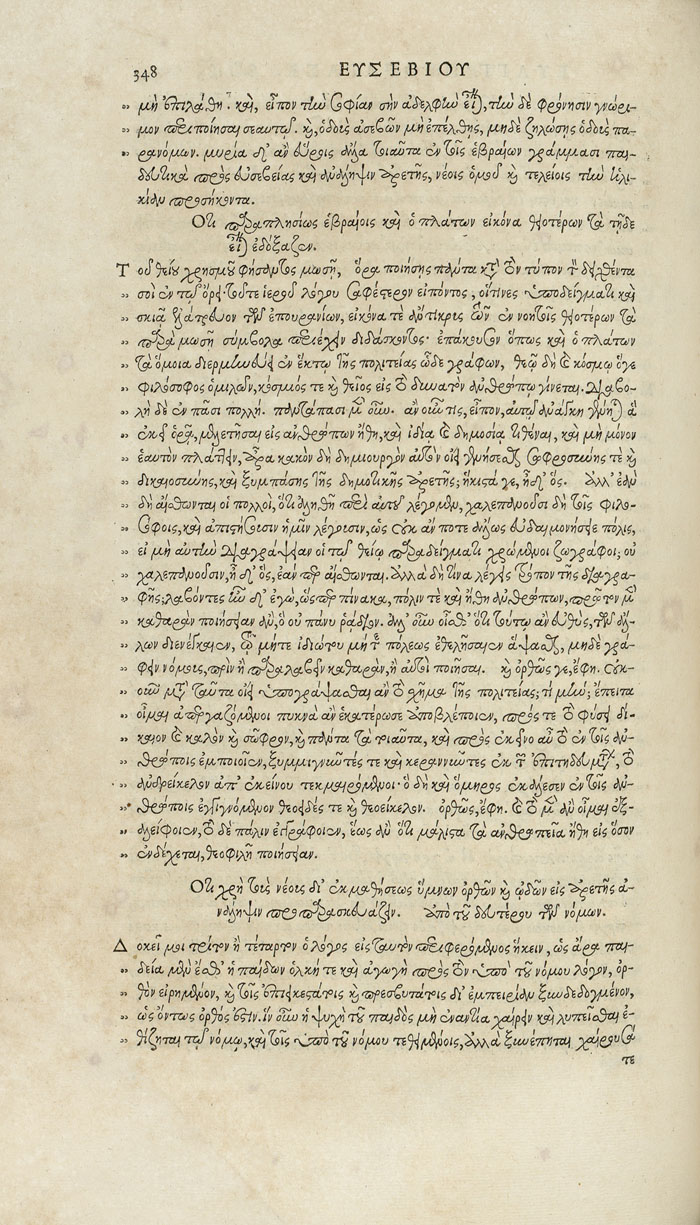 348 ΕΥΣΕΒΙΟΥ
μὴ ἐπιλάθῃ. καὶ, εἶπον τὴν σοφίαν σὴν ἀδελφὴν εἶναι, τὴν δὲ φρόνησιν γνώρι-
μον περιποίησαι σεαυτῷ. καὶ, ὁδοὺς ἀσεβῶν μὴ ἐπέλθῃς, μηδὲ ζηλώσῃς ὁδοὺς πα-
ρανόμων. μυρία δ' ἂν εὕροις ἄλλα τοιαῦτα ἐν τοῖς ἑβραίων γράμμασι παι-
δευτικὰ πρὸς εὐσεβείας καὶ ἀνάληψιν ἀρετῆς, νέοις ὁμοῦ καὶ τελείοις τὴν ἡλι-
κίαν προσήκοντα.
Ὅτι παραπλησίως ἑβραίοις καὶ ὁ πλάτων εἰκόνα θειοτέρων τὰ τῇδε
εἶναι ἐδόξαζεν.
Τοῦ θείου χρησμοῦ φήσαντος μωσῇ, ὅρα ποιήσῃς πάντα κατὰ τὸν τύπον τὸν δειχθέντα
σοὶ ἐν τῷ ὄρει· τοῦ τε ἱεροῦ λόγου σαφέστερον εἰπόντος, οἵτινες ὑποδείγματι καὶ
σκιᾷ ἐλάτρευον τῶν ἐπουρανίων, εἰκόνα τε ἄντικρις τῶν ἐν νοητοῖς θειοτέρων τὰ
παρὰ μωσῇ σύμβολα περιέχειν διδάσκοντος· ἐπάκουσον ὅπως καὶ ὁ πλάτων
τὰ ὅμοια διερμηνεύει ἐν ἕκτῳ τῆς πολιτείας ὧδε γράφων, θεῷ δὴ καὶ κόσμῳ ὅγε
φιλόσοφος ὁμιλῶν, κόσμιός τε καὶ θεῖος εἰς τὸ δυνατὸν ἀνθρώπῳ γίνεται. διαβο-
λὴ δὲ ἐν πᾶσι πολλή. παντάπασι μὲν οὖν. ἂν οὖν τις, εἶπον, αὐτῷ ἀνάγκη γένηται ἃ
ἐκεῖ ὁρᾷ, μελετῆσαι εἰς ἀνθρώπων ἤθη, καὶ ἰδίᾳ καὶ δημοσίᾳ τιθέναι, καὶ μὴ μόνον
ἑαυτὸν πλάττειν, ἆρα κακὸν δὴ δημιουργὸν αὐτὸν οἴει γενήσεσθαι σωφροσύνης τε καὶ
δικαιοσύνης, καὶ ξυμπάσης τῆς δημοτικῆς ἀρετῆς; ἥκιστά γε, ἦ δ' ὅς. ἀλλ' ἐὰν
δὴ αἴσθωνται οἱ πολλοί, ὅτι ἀληθῆ περὶ αὐτοῦ λέγομεν, χαλεπανοῦσι δὴ τοῖς φιλο-
σόφοις, καὶ ἀπιστήσουσιν ἡμῖν λέγουσιν, ὡς οὐκ ἄν ποτε ἄλλως εὐδαιμονήσειε πόλις,
εἰ μὴ αὐτὴν διαγράψειαν οἱ τῷ θείῳ παραδείγματι χρώμενοι ζωγράφοι; οὐ
χαλεπανοῦσιν, ἦ δ' ὅς, ἐάν περ αἴσθωνται. ἀλλὰ δὴ τίνα λέγεις τρόπον τῆς διαγρα-
φῆς; λαβόντες ἦν δ' ἐγώ, ὥσπερ πίνακα, πόλιν τε καὶ ἤθη ἀνθρώπων, πρῶτον μὲν
καθαρὰν ποιήσειαν ἄν, ὃ οὐ πάνυ ῥᾴδιον. ἀλλ' οὖν οἶσθ' ὅτι τούτῳ ἂν εὐθὺς, τῶν ἄλ-
λων διενέγκαιεν, τῷ μήτε ἰδιώτου μήτε πόλεως ἐθελῆσαι ἂν ἅψασθαι, μηδὲ γρά-
φειν νόμους, πρὶν ἢ παραλαβεῖν καθαρὰν, ἢ αὐτοὶ ποιῆσαι. καὶ ὀρθῶς γε, ἔφη. οὐκ-
οῦν μετὰ ταῦτα οἴει ὑπογράψασθαι ἂν τὸ σχῆμα τῆς πολιτείας; τί μήν; ἔπειτα
οἶμαι ἀπεργαζόμενοι πυκνὰ ἂν ἑκατέρωσε ἀποβλέποιεν, πρός τε τὸ φύσει δί-
καιον καὶ καλὸν καὶ σῶφρον, καὶ πάντα τὰ τοιαῦτα, καὶ πρὸς ἐκεῖνο αὖ τὸ ἐν τοῖς ἀν-
θρώποις ἐμποιοῖεν, ξυμμιγνῶντές τε καὶ κεραννῶντες ἐκ τῶν ἐπιτηδευμάτων, τὸ
ἀνδρείκελον ἀπ' ἐκείνου τεκμαιρόμενοι· ὃ δὴ καὶ ὅμηρος ἐκάλεσεν ἐν τοῖς ἀν-
θρώποις ἐγγιγνόμενον θεοειδές τε καὶ θεοείκελον. ὀρθῶς, ἔφη. καὶ τὸ μὲν ἂν οἶμαι ἐξ-
αλείφοιεν, τὸ δὲ πάλιν ἐγγράφοιεν, ἕως ἂν ὅτι μάλιστα τὰ ἀνθρώπεια ἤθη εἰς ὅσον
ἐνδέχεται, θεοφιλῆ ποιήσειαν.
Ὅτι χρὴ τοὺς νέοις δι' ἐκμαθήσεως ὕμνων ὀρθῶν καὶ ᾠδῶν εἰς ἀρετῆς ἀ-
νάληψιν προπαρασκευάζειν. Ἀπὸ τοῦ δευτέρου τῶν νόμων.
Δοκεῖ μοι τρίτον ἢ τέταρτον ὁ λόγος εἰς ταυτὸν περιφερόμενος ἥκειν, ὡς ἄρα παι-
δεία μέν ἐσθ' ἡ παίδων ὁλκή τε καὶ ἀγωγὴ πρὸς τὸν ὑπὸ τοῦ νόμου λόγον, ὀρ-
θὸν εἰρημένον, καὶ τοῖς ἐπιεικεστάτοις καὶ πρεσβυτάτοις δι' ἐμπειρίαν ξυνδεδογμένον,
ὡς ὄντως ὀρθός ἐστιν. ἵν οὖν ἡ ψυχὴ τοῦ παιδὸς μὴ ἐναντία χαίρειν καὶ λυπεῖσθαι ἐ-
θίζηται τῷ νόμῳ, καὶ τοῖς ὑπὸ τοῦ νόμου τεθειμένοις, ἀλλὰ ξυνέπηται χαίρουσά
τε